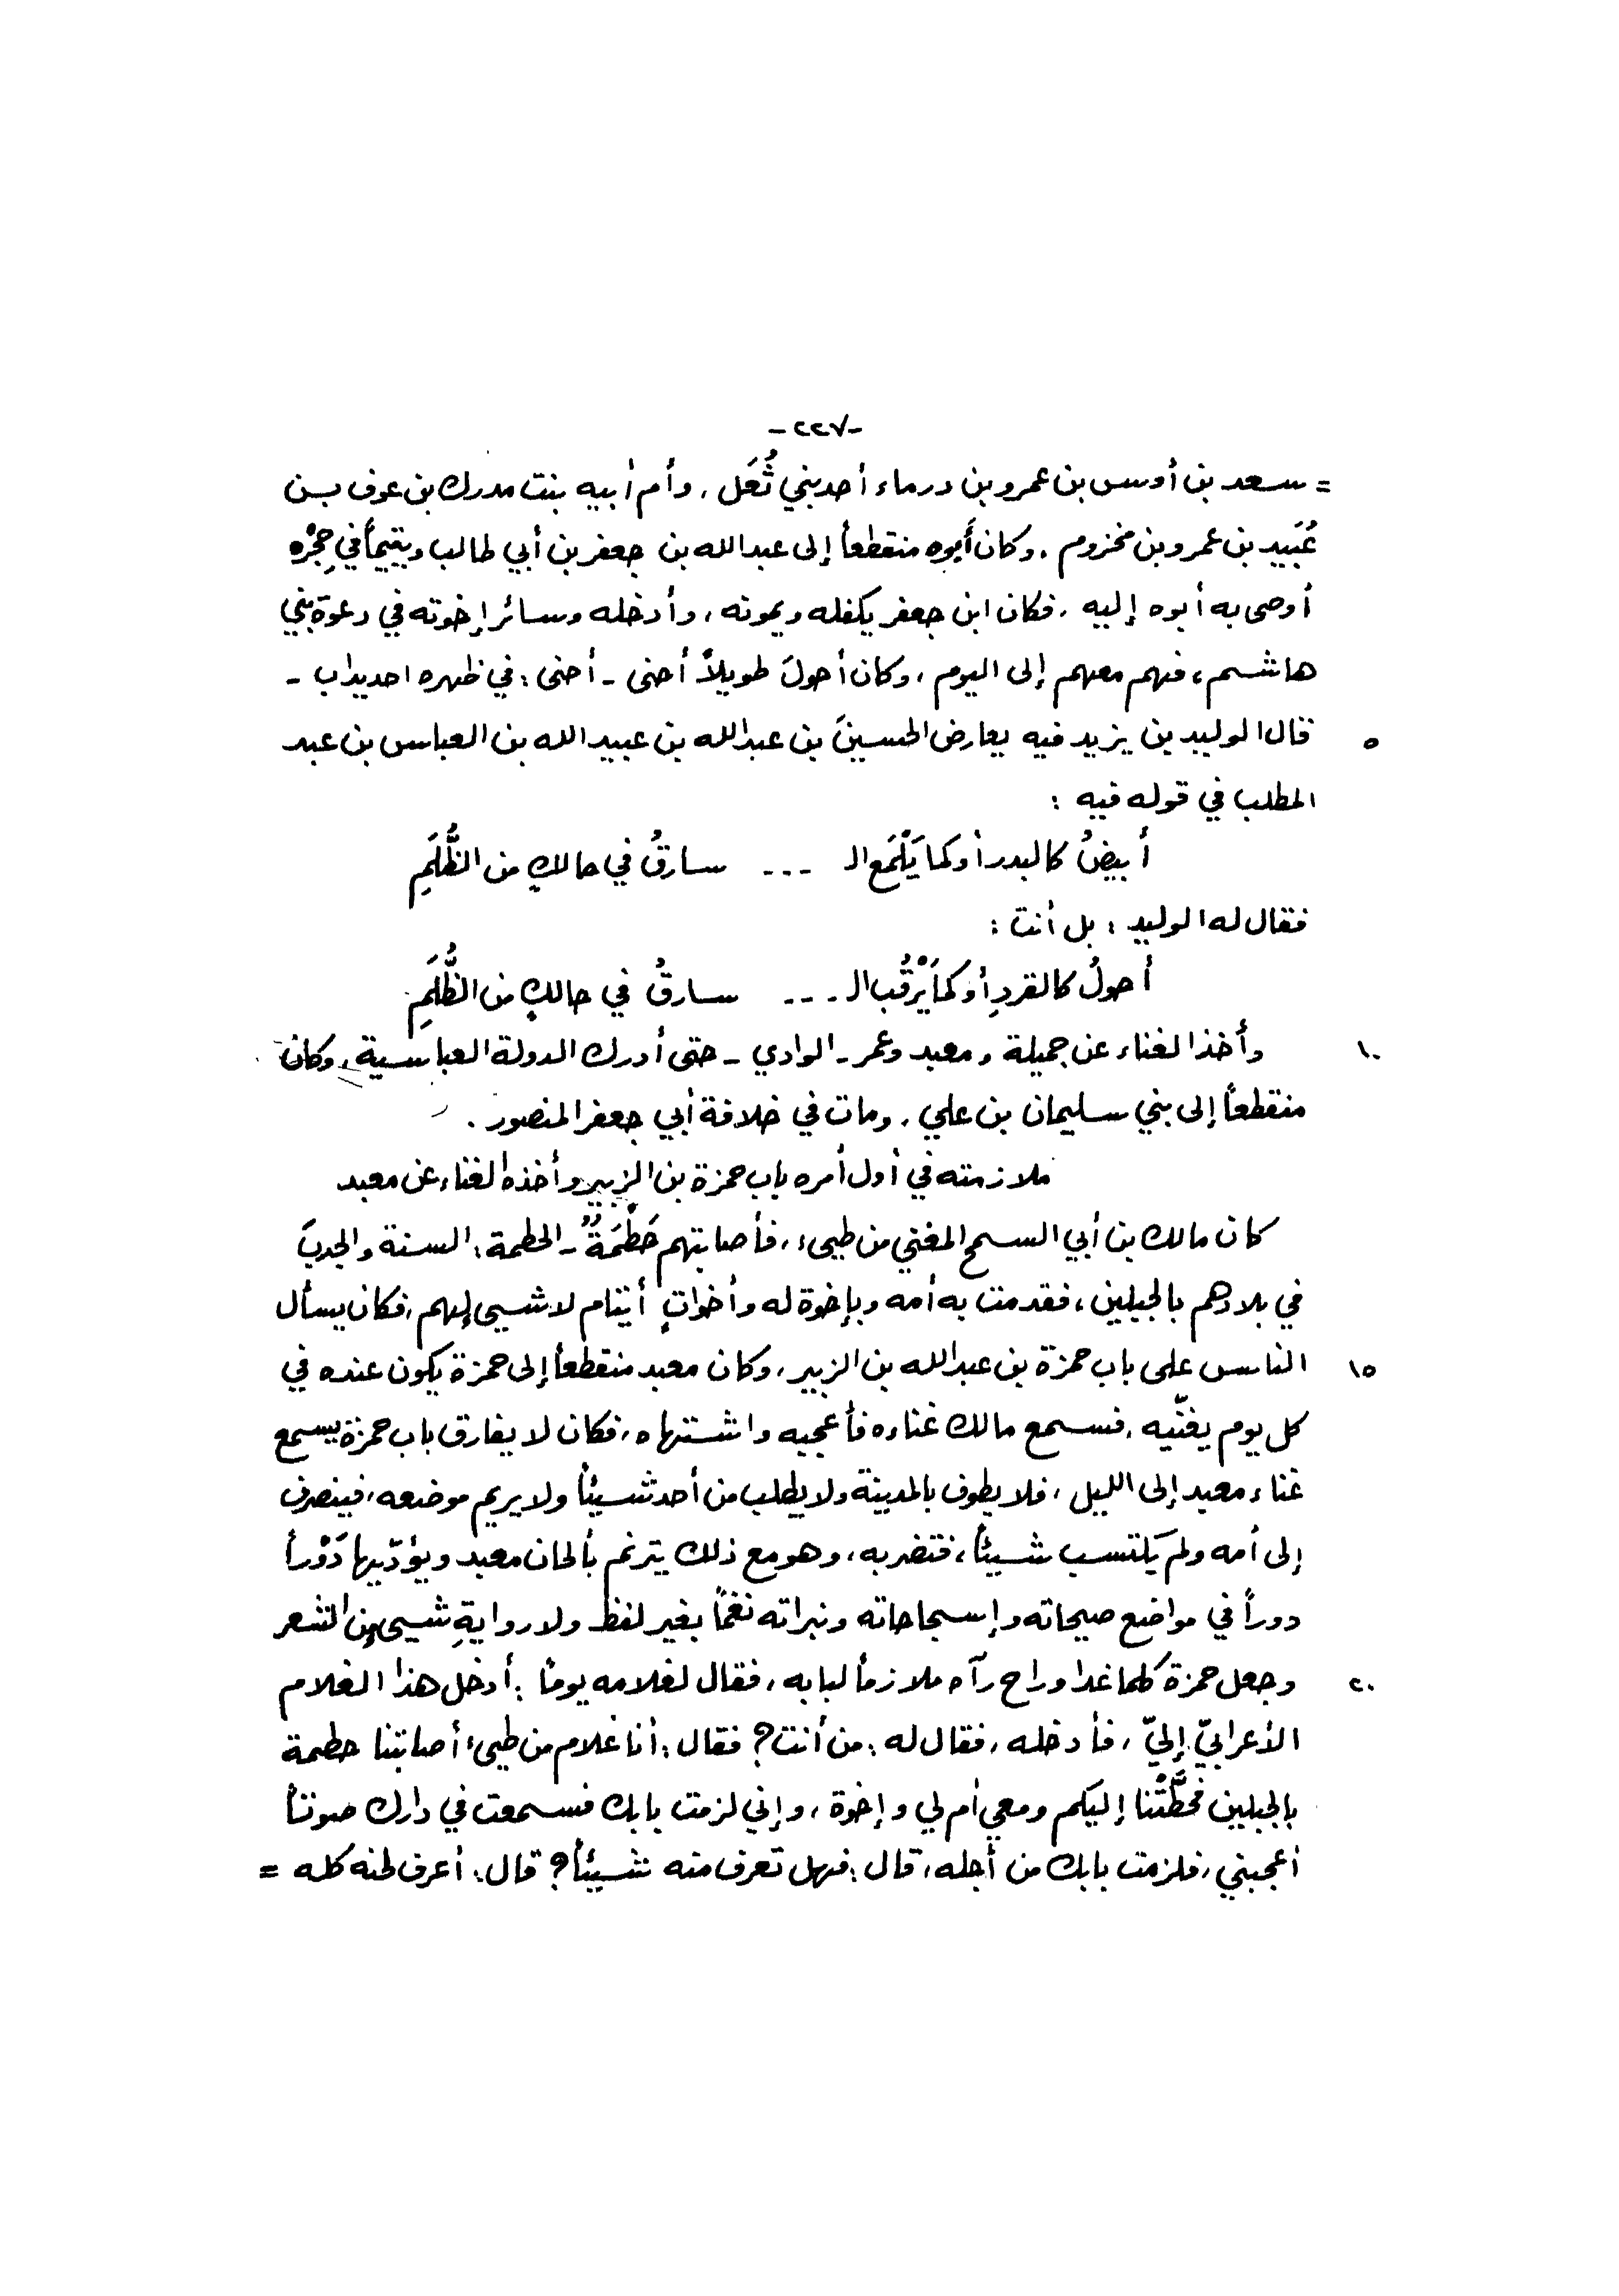 -٢٢٧-
= سعد بن أوس بن عمرو بن درماء أحد بني ثُعَل، وأم أبيه بنت مدرك بن عوف بن
عُبَيد بن عمرو بن مخزوم. وكان أبوه منقطعاً إلى عبدالله بن جعفر بن أبي طالب ويتيماً في حِجْره
أوصى به أبوه إليه، فكان ابن جعفر يكفله ويمونه، وأدخله وسائر إخوته في دعوة بني
هاشم، فهم معهم إلى اليوم، وكان أحولَ طويلاً أحنى - أحنى: في ظهره احديداب -
٥ قال الوليد بن يزيد فيه يعارض الحسينَ بن عبدالله بن عبيدالله بن العباس بن عبد
المطلب في قوله فيه :
أبيضُ كالبدر أو كما يَلْمَع الـ ... سارقُ في حالكٍ من الظُّلَمِ
فقال له الوليد: بل أنت:
أحولُ كالقردِ أو كما يَرْقُب الـ ... سارقُ في حالكٍ من الظُّلَمِ
١٠ وأخذ الغناء عن جميلة ومعبد وعمر - الوادي - حتى أدرك الدولة العباسية، وكان
منقطعاً إلى بني سليمان بن علي، ومات في خلافة أبي جعفر المنصور.
ملازمته في أول أمره باب حمزة بن الزبير وأخذه الغناء عن معبد
كان مالك بن أبي السمح المغني من طيىء، فأصابتهم حَطْمَةٌ - الحطمة: السنة والجدبَ
في بلادهم بالجبلين، فقدمت به أمه وبإخوة له وأخواتٍ أيتام لا شيى لهم، فكان يسأل
١٥ الناس على باب حمزة بن عبدالله بن الزبير، وكان معبد منقطعاً إلى حمزة يكون عنده في
كل يوم يغنّيه، فسمع مالك غناءه فأعجبه واشتهاه، فكان لا يفارق باب حمزة يسمع
غناء معبد إلى الليل، فلا يطوف بالمدينة ولا يطلب من أحد شيئاً ولا يريم موضعه، فينصرف
إلى أمه ولم يَلتسب شيئاً، فتضربه، وهو مع ذلك يترنم بألحان معبد ويؤدّيها دَوْراً
دوراً في مواضع صيحاته وإسجاحاته ونبراته نغماً بغير لفظ ولا روايةِ شيى من الشعر
٢٠ وجعل حمزة كلما غدا وراح رآه ملازماً لبابه، فقال لغلامه يوماً: أدخل هذا الغلام
الأعرابيّ إليّ، فأدخله، فقال له: من أنت؟ فقال: أنا غلام من طيىء أصابتنا حطمة
بالجبلين فحطَّتْنا إليكم ومعي أم لي وإخوة، وإني لزمت بابك فسمعت في دارك صوتاً
أعجبني، فلزمت بابك من أجله، قال: فهل تعرف منه شيئاً؟ قال: أعرف لحنه كله =